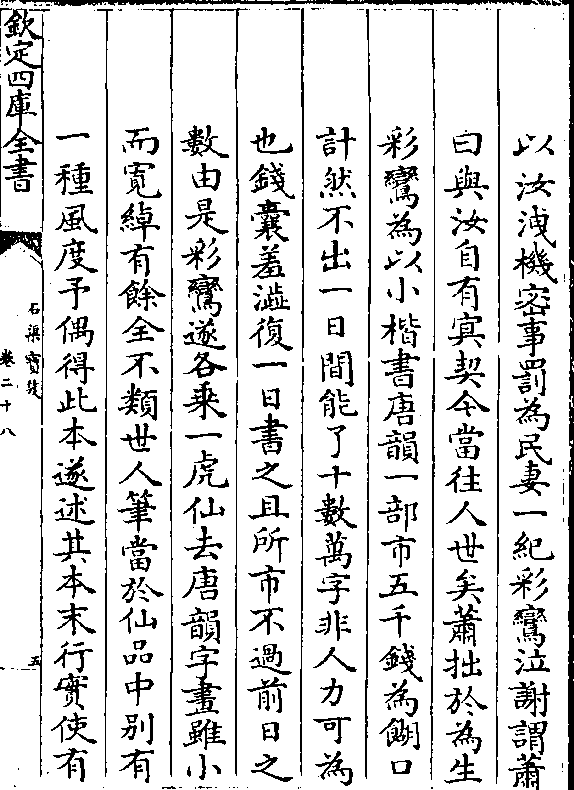 以汝洩機密事罰為民妻一紀彩鸞泣謝謂蕭
曰與汝自有冥契今當往人世矣蕭拙於為生
彩鸞為以小楷書唐韻一部市五千錢為餬口
計然不出一日間能了十數萬字非人力可為
也錢囊羞澁復一日書之且所市不過前日之
數由是彩鸞遂各乘一虎仙去唐韻字畫雖小
而寬綽有餘全不類世人筆當於仙品中別有
一種風度予偶得此本遂述其本末行實使有
欽定四庫全書
石渠寶笈
卷二十八
五